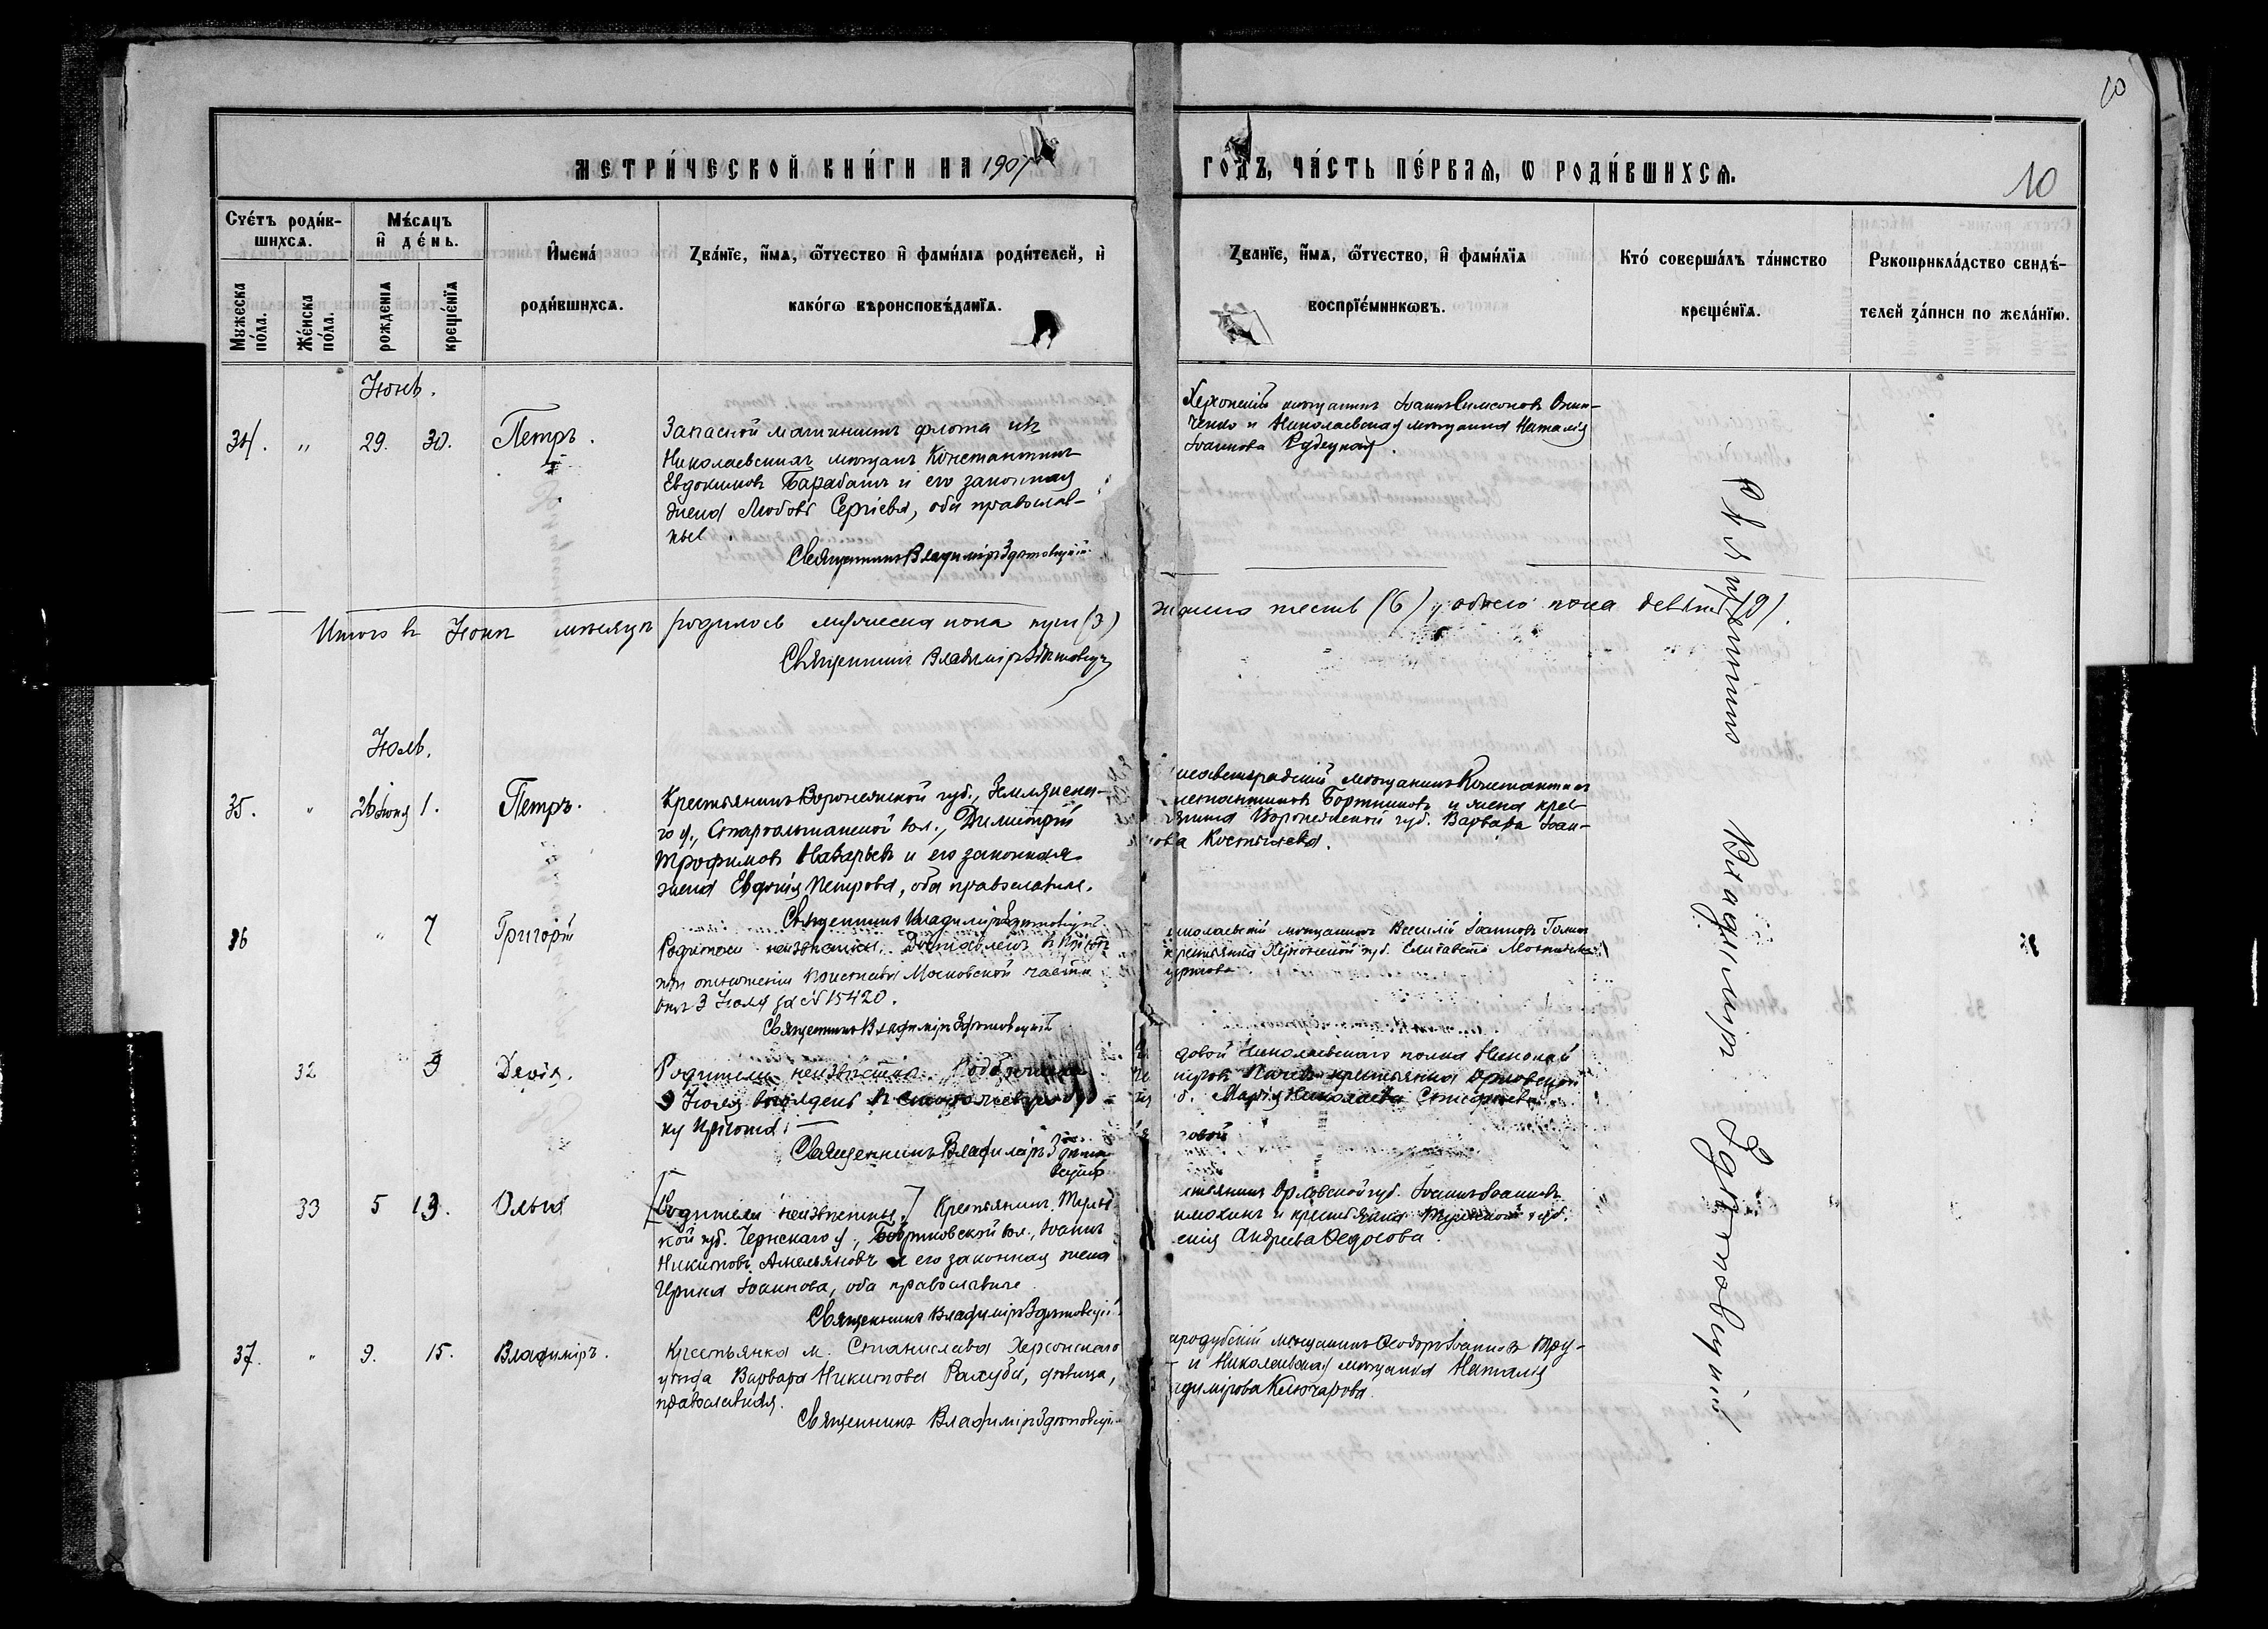 10
МЕТРИ́ЧЕСКОЙ КНИ́ГИ НА 1907
ГОДЪ, ЧА́СТЬ ПЕ́РВАѦ, Ѡ РОДИ́ВШИХСѦ.
10
Счетъ роди́вшихсѧ.
Мꙋжеска по́ла.
Же́нска по́ла.
Мѣ́сѧцъ и҆ де́нь.
рожденїѧ
креще́нїѧ
И҆мена́ роди́вшихсѧ.
Зва́нїе, и҆́мѧ, ѻ҆́тчество и҆ фами́лїѧ роди́телей, и҆
како́гѡ вѣроисповѣ́данїѧ.
Зва́нїе, и҆́мѧ, ѻ҆́тчество, и҆ фами́лїѧ
воспрїе́мникѡвъ.
Кто́ соверша́лъ та́инство
креще́нїѧ.
Рꙋкоприкла́дство свидѣ́-
телей за́писи по жела́нїю.
Іюнь.
34. " 29. 30. Петръ.
Запасной машинистъ флота изъ
Николаевскихъ мѣщанъ Константинъ
Евдокимовъ Барабашъ и его законная
жена Любовь Сергіева, оба православ-
ные.
Священникъ Владиміръ Здетовецкій
Херсонскій мѣщанинъ Іоаннъ Симеоновъ
ченко и Николаевская мѣщанка Наталія
Іоаннова Рудецкая.
Итого въ Іюнѣ мѣсяцѣ родилось мужеска пола три (3)
женска шесть (6) обоего пола девять (9).
Священникъ Владиміръ Здетовецкій
Іюль.
35. " 26 Іюня 1. Петръ.
Крестьянинъ Воронежской губ., Землянска-
го у., Староольшанской вол., Димитрій
Трофимовъ Назарьевъ и его законная
жена Евдокія Петрова, оба православные.
Священникъ Владиміръ Здетовецкій
исаветградскій мѣщанинъ Константинъ
Бортниковъ и жена крес-
Воронежской губ. Варвара Іоан-
ова Костылева.
36 " 7 Григорій
Родители неизвѣстны. Доставленъ въ пріютъ
при отношеніи Пристава Московской части
отъ 3 Іюля за № 15420.
Священникъ Владиміръ Здетовецкій
иколаевскій мѣщанинъ Василій Іоанновъ
крестьянка Херсонской губ. Елисавета
32 9 Дарія.
Родители неизвѣстны. Подброшена
9 Іюля
ку пріюта.
Священникъ Владиміръ Здето-
вецкій
довой Николаевскаго полка Николай
крестьянка Орловской
б. Марія Николаева
33 5 13. Ольга
[Родители неизвѣстны.] Крестьянинъ Туль
кой губ. Чернскаго у., Бобриковской вол., Іоаннъ
Никитовъ Амельяновъ и его законная жена
Ирина Іоаннова, оба православные
Священникъ Владиміръ Здетовецкій
Орловской губ. Іоаннъ Іоанновъ
и крестьянка Тульской губ.
Андреева Федосова.
37. " 9. 15. Владиміръ.
Крестьянка м. Станислава Херсонскаго
уѣзда Варвара Никитова Рахуба, дѣвица,
православная.
Священникъ Владиміръ Здетовецкій
ародубскій мѣщанинъ Ѳеодоръ Іоанновъ Тру-
и Николаевская мѣщанка Наталія
адимірова Ключарова.
Священникъ Владиміръ Здетовецкій.